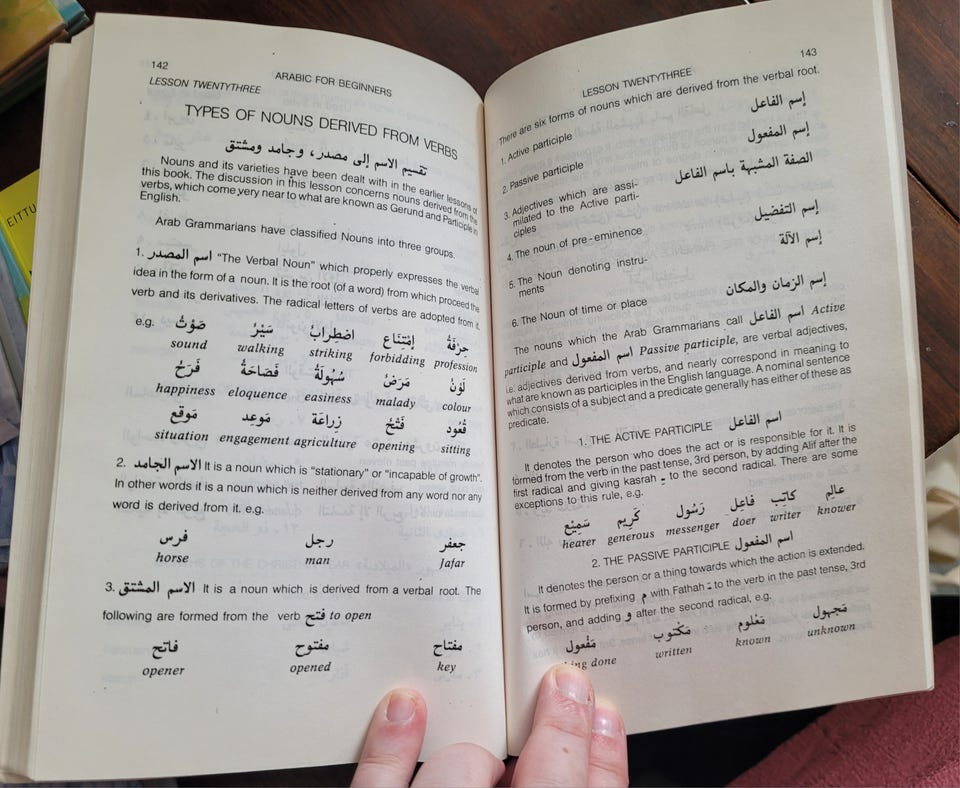 142
ARABIC FOR BEGINNERS
LESSON TWENTYTHREE
TYPES OF NOUNS DERIVED FROM VERBS
تقسيم الاسم إلى مصدر، وجامد ومشتق
Nouns and its varieties have been dealt with in the earlier lessons of
this book. The discussion in this lesson concerns nouns derived from the
verbs, which come very near to what are known as Gerund and Participle in
English.
Arab Grammarians have classified Nouns into three groups.
1. اسم المصدر "The Verbal Noun" which properly expresses the verbal
idea in the form of a noun. It is the root (of a word) from which proceed the
verb and its derivatives. The radical letters of verbs are adopted from it.
e.g. صَوْتٌ سَيْرٌ اضطِرابٌ إمْتِنَاع حِرْفَةٌ
sound walking striking forbidding profession
فَرَحٌ فَصَاحَةٌ سُهُولَةٌ مَرَضٌ لَوْنٌ
happiness eloquence easiness malady colour
مَوقَع مَوعِد زِراعَة فَتْحٌ قُعُود
situation engagement agriculture opening sitting
2. الاسم الجامد It is a noun which is "stationary" or "incapable of growth".
In other words it is a noun which is neither derived from any word nor any
word is derived from it. e.g.
فرس رجل جعفر
horse man Jafar
3. الاسم المشتق It is a noun which is derived from a verbal root. The
following are formed from the verb فتح to open
فاتح مفتوح مفتاح
opener opened key
143
LESSON TWENTYTHREE
There are six forms of nouns which are derived from the verbal root.
1. Active participle إسم الفاعل
2. Passive participle إسم المفعول
3. Adjectives which are assi- الصفة المشبهة باسم الفاعل
milated to the Active parti-
ciples
4. The noun of pre-eminence إسم التفضيل
5. The Noun denoting instru- إسم الآلة
ments
6. The Noun of time or place إسم الزمان والمكان
The nouns which the Arab Grammarians call اسم الفاعل Active
participle and اسم المفعول Passive participle, are verbal adjectives,
i.e. adjectives derived from verbs, and nearly correspond in meaning to
what are known as participles in the English language. A nominal sentence
which consists of a subject and a predicate generally has either of these as
predicate.
1. THE ACTIVE PARTICIPLE اسم الفاعل
It denotes the person who does the act or is responsible for it. It is
formed from the verb in the past tense, 3rd person, by adding Alif after the
first radical and giving kasrah ـِ to the second radical. There are some
exceptions to this rule, e.g.
سَمِيْع كَرِيم رَسُول فاعِل كاتِب عالِم
hearer generous messenger doer writer knower
2. THE PASSIVE PARTICIPLE اسم المفعول
It denotes the person or a thing towards which the action is extended.
It is formed by prefixing م with Fathah ـَ to the verb in the past tense, 3rd
person, and adding و after the second radical, e.g.
مَفْعول مَكْتوب مَعْلوم مَجهول
done written known unknown